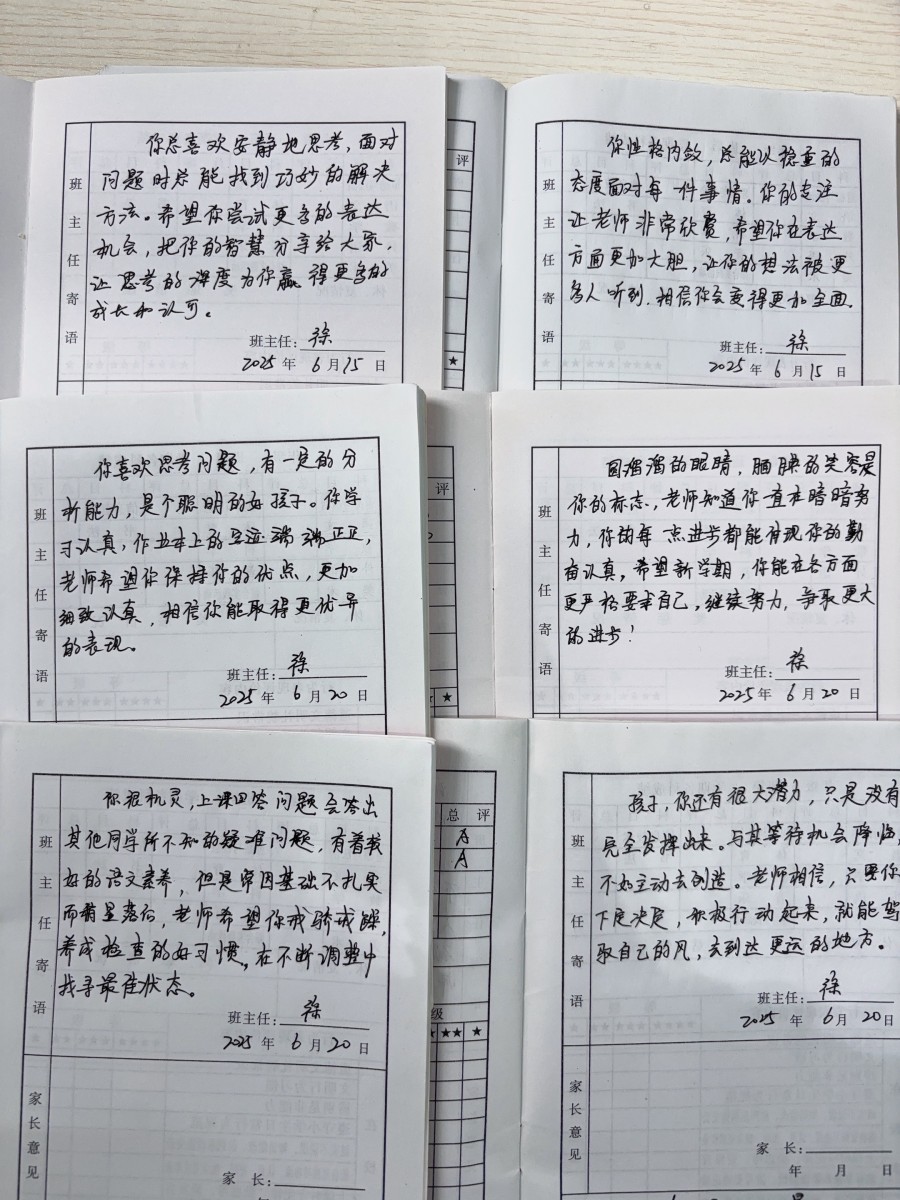 班主任寄语
你总喜欢安静地思考，面对
问题时总能找到巧妙的解决
方法。希望你尝试更多的表达
机会，把你的智慧分享给大家，
让思考的深度为你赢得更多的
成长和认可。
班主任：徐
2025年6月15日
评
★
班主任寄语
你性格内敛，总能以稳重的
态度面对每一件事情。你的专注
让老师非常欣赏，希望你在表达
方面更加大胆，让你的想法被更
多人听到，相信你会变得更加全面。
班主任：徐
2025年6月15日
班主任寄语
你喜欢思考问题，有一定的分
析能力，是个聪明的好孩子。你学
习认真，作业本上的字迹端端正正，
老师希望你保持你的优点，更加
细致认真，相信你能取得更优异
的表现。
班主任：徐
2025年6月20日
评
★★
班主任寄语
圆溜溜的眼睛，腼腆的笑容是
你的标志，老师知道你一直在暗暗努
力，你的每一点进步都能体现你的勤
奋认真，希望新学期，你能在各方面
更严格要求自己，继续努力，争取更大
的进步！
班主任：徐
2025年6月20日
班主任寄语
你很机灵，上课回答问题会答出
其他同学所不知的疑难问题，有着较
好的语文素养，但是常因基础不扎实
而稍显落后，老师希望你戒骄戒躁，
养成检查的好习惯，在不断调整中
找寻最佳状态。
班主任：徐
2025年6月20日
家长意见
家 长：
年
月
日
总 评
A
A
级
★★★
★
班主任寄语
孩子，你还有很大潜力，只是没有
完全发挥出来。与其等待机会降临，
不如主动去创造。老师相信，只要你
下定决定，积极行动起来，就能驾
驭自己的风，去到达更远的地方。
班主任：徐
2025年6月20日
家长意见
家 长：
年 月 日